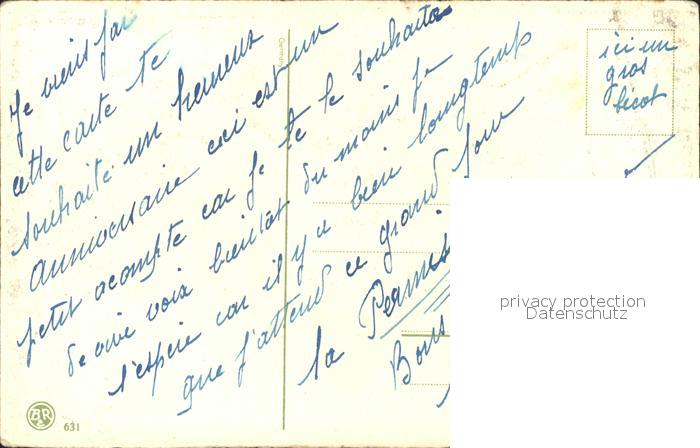 Je viens par
cette carte te
souhaité un heureux
anniversaire ceci est un
petit acompte car je te le souhaite
de vive voix bientôt du moins je
l'espère car il y a bien longtemp
que j'attend ce grand jour
la Permis
Bons
ici un
gros
bécot
privacy protection
Datenschutz
BR
631